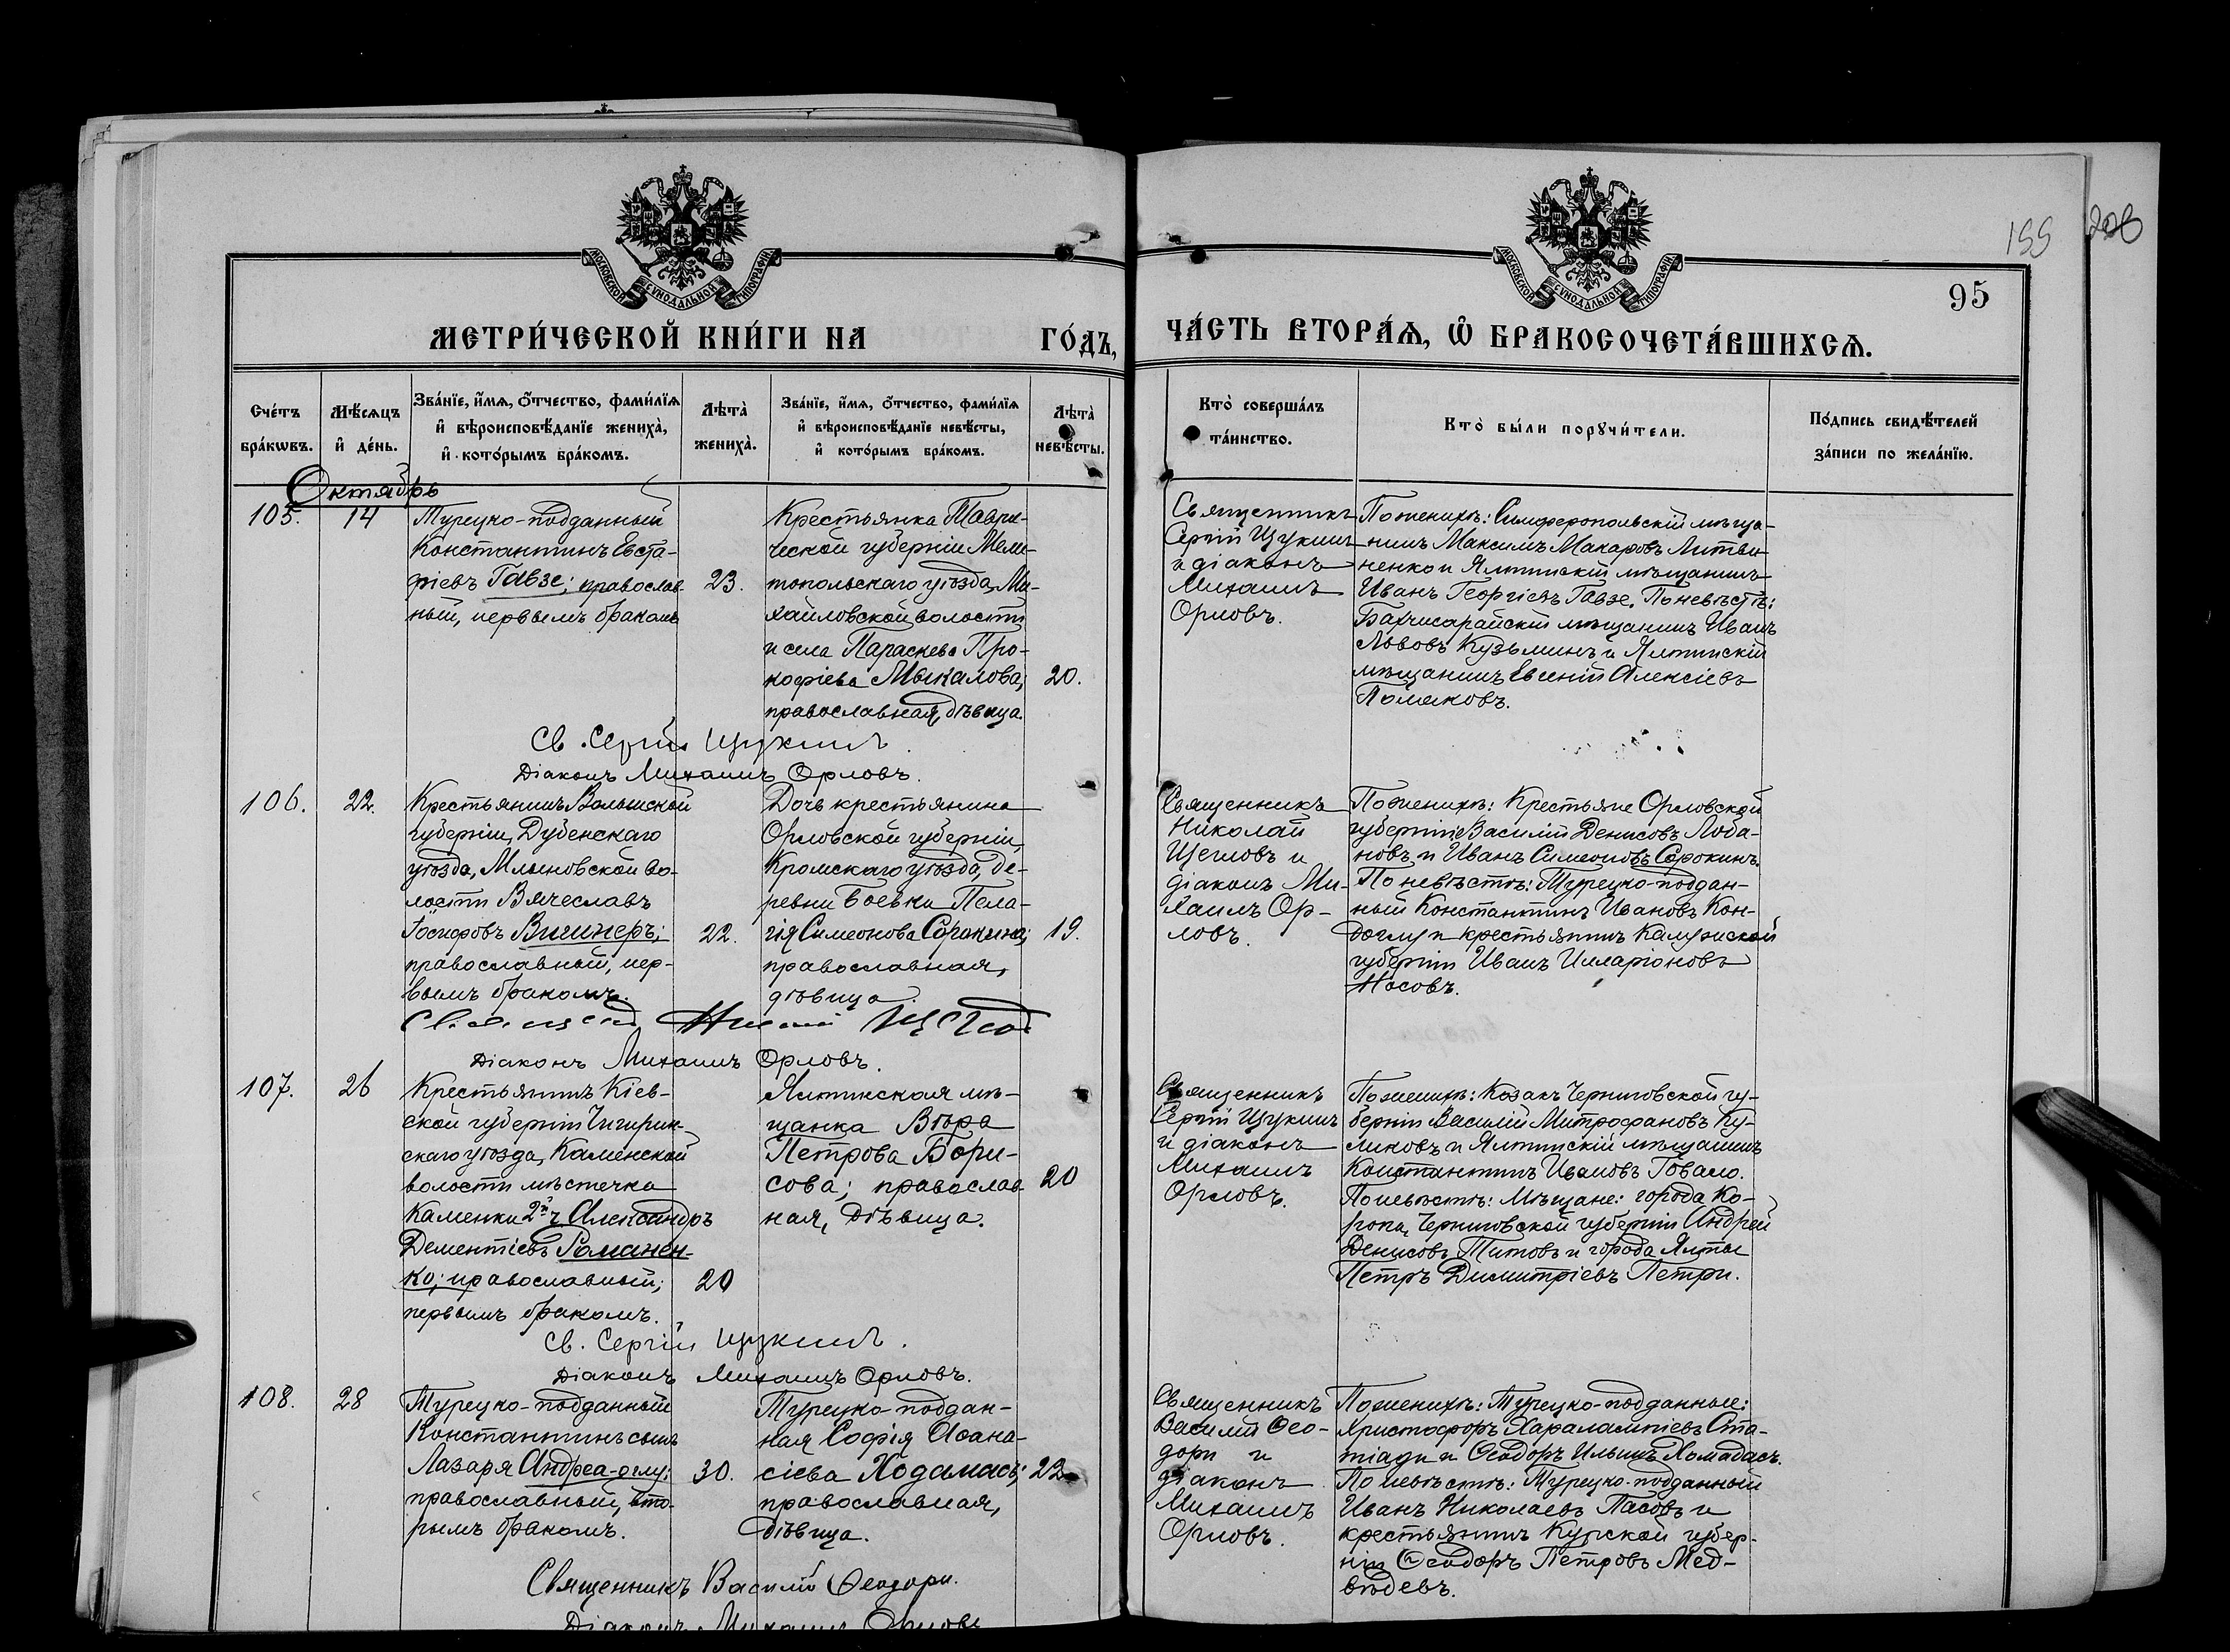 МОСКОВСКОЙ СУНОДАЛЬНОЙ ТИПОГРАФІИ
МОСКОВСКОЙ СУНОДАЛЬНОЙ ТИПОГРАФІИ
155
208
95
МЕТРИ́ЧЕСКОЙ КНИ́ГИ НА ГО́ДЪ,
ЧА́СТЬ ВТОРА́Я, Ѡ БРАКОСОЧЕТА́ВШИХСЯ.
Сче́тъ бра́кωвъ.
Мѣ́сяцъ и҆ де́нь.
Зва́нїе, и҆́мя, ѻ҆́тчество, фами́лїя
и҆ вѣроисповѣ́данїе жениха̀,
и҆ кото́рымъ бра́комъ.
Лѣта̀ жениха̀.
Зва́нїе, и҆́мя, ѻ҆́тчество, фами́лїя
и҆ вѣроисповѣ́данїе невѣ́сты,
и҆ кото́рымъ бра́комъ.
Лѣта̀ невѣ́сты.
Кто̀ соверша́лъ
та́инство.
Кто̀ бы́ли порꙋчи́тели.
По́дпись свидѣ́телей
за́писи по жела́нїю.
Октябрь
105.
14
Турецко-подданный
Константинъ Евста-
фіевъ Гавзе; православ-
ный, первымъ бракомъ
23.
Крестьянка Таври-
ческой губерніи Мели-
топольскаго уѣзда, Ми-
хайловской волости
и села Параскева Про-
кофіева Мыкалова;
православная, дѣвица.
20.
Священникъ
Сергій Щукинъ
и діаконъ
Михаилъ
Орловъ.
По женихѣ: Симферопольскій мѣща-
нинъ Максимъ Макаровъ Литви-
ненко и Ялтинскій мѣщанинъ
Иванъ Георгіевъ Гавзе. По невѣстѣ:
Бахчисарайскій мѣщанинъ Иванъ
Львовъ Кузьминъ и Ялтинскій
мѣщанинъ Евгеній Алексіевъ
Поляковъ.
Св. Сергій Щукинъ.
Діаконъ Михаилъ Орловъ.
106.
22.
Крестьянинъ Волынской
губерніи, Дубенскаго
уѣзда, Млыновской во-
лости Вячеславъ
Іосифовъ Вишнеръ;
православный, пер-
вымъ бракомъ.
22.
Дочь крестьянина
Орловской губерніи,
Кромскаго уѣзда, де-
ревни Боевки Пела-
гія Симеонова Сорокина;
православная,
дѣвица.
19.
Священникъ
Николай
Щегловъ и
діаконъ Ми-
хаилъ Ор-
ловъ.
По женихѣ: Крестьяне Орловской
губерніи Василій Денисовъ Лоба-
новъ и Иванъ Симеоновъ Сорокинъ.
По невѣстѣ: Турецко-поддан-
ный Константинъ Ивановъ Кон-
доглу и крестьянинъ Калужской
губерніи Иванъ Илларіоновъ
Носовъ.
Священ Николай Щеглов
Діаконъ Михаилъ Орловъ.
107.
26
Крестьянинъ Кіев-
ской губерніи Чигирин-
скаго уѣзда, Каменской
волости мѣстечка
Каменки 2й ч Александръ
Дементіевъ Романен-
ко; православный;
первымъ бракомъ.
20
Ялтинская мѣ-
щанка Вѣра
Петрова Бори-
сова; православ-
ная, дѣвица.
20
Священникъ
Сергій Щукинъ
и діаконъ
Михаилъ
Орловъ.
По женихѣ: Козакъ Черниговской гу-
берніи Василій Митрофановъ Ку-
ликовъ и Ялтинскій мѣщанинъ
Константинъ Ивановъ Говало.
По невѣстѣ: Мѣщане: города Ко-
ропа, Черниговской губерніи Андрей
Денисовъ Титовъ и города Ялты
Петръ Димитріевъ Петри.
Св. Сергій Щукинъ.
Діаконъ Михаилъ Орловъ.
108.
28
Турецко-подданный
Константинъ сынъ
Лазаря Андреа-оглу;
православный, вто-
рымъ бракомъ.
30.
Турецко-поддан-
ная Софія Аѳана-
сіева Ходамасъ;
православная,
дѣвица.
22
Священникъ
Василій Ѳео-
дори и
діаконъ
Михаилъ
Орловъ.
По женихѣ: Турецко-подданные:
Христофоръ Харалампіевъ Ста-
тіади и Ѳеодоръ Ильинъ Хомадасъ.
По невѣстѣ: Турецко-подданный
Иванъ Николаевъ Пасовъ и
крестьянинъ Курской губер-
ніи Ѳеодоръ Петровъ Мед-
вѣдевъ.
Священникъ Василій Ѳеодори.
Діаконъ Михаилъ Орловъ